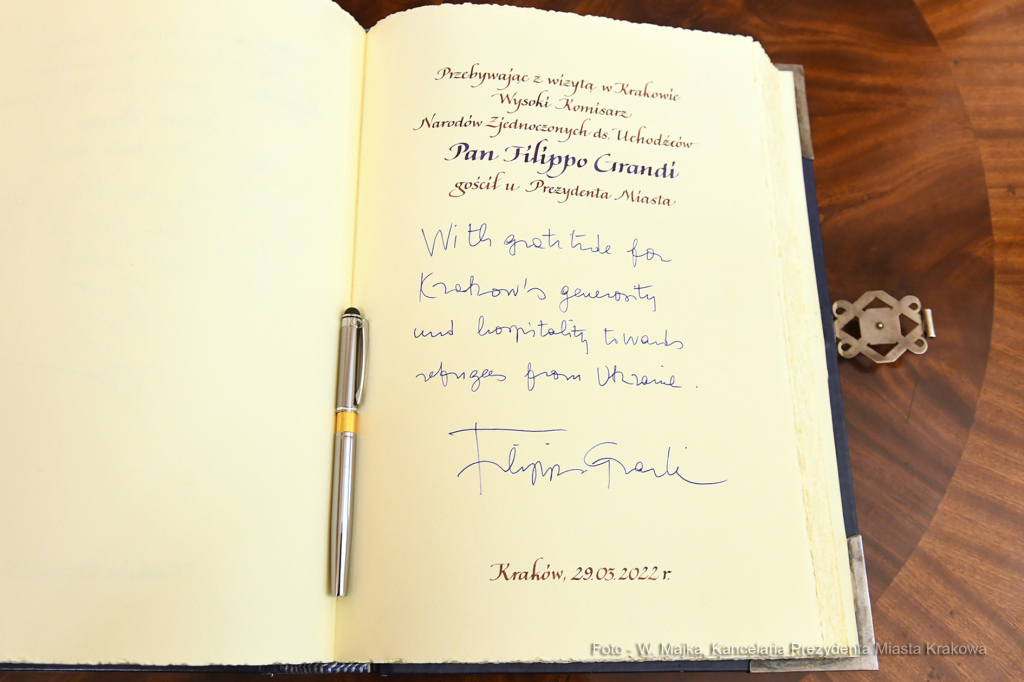 Przebywając z wizytą w Krakowie
Wysoki Komisarz
Narodów Zjednoczonych ds. Uchodźców
Pan Filippo Grandi
gościł u Prezydenta Miasta
With gratitude for
Krakow's generosity
and hospitality towards
refugees from Ukraine.
Filippo Grandi
Kraków, 29.03.2022 r.
Foto - W. Majka, Kancelaria Prezydenta Miasta Krakowa